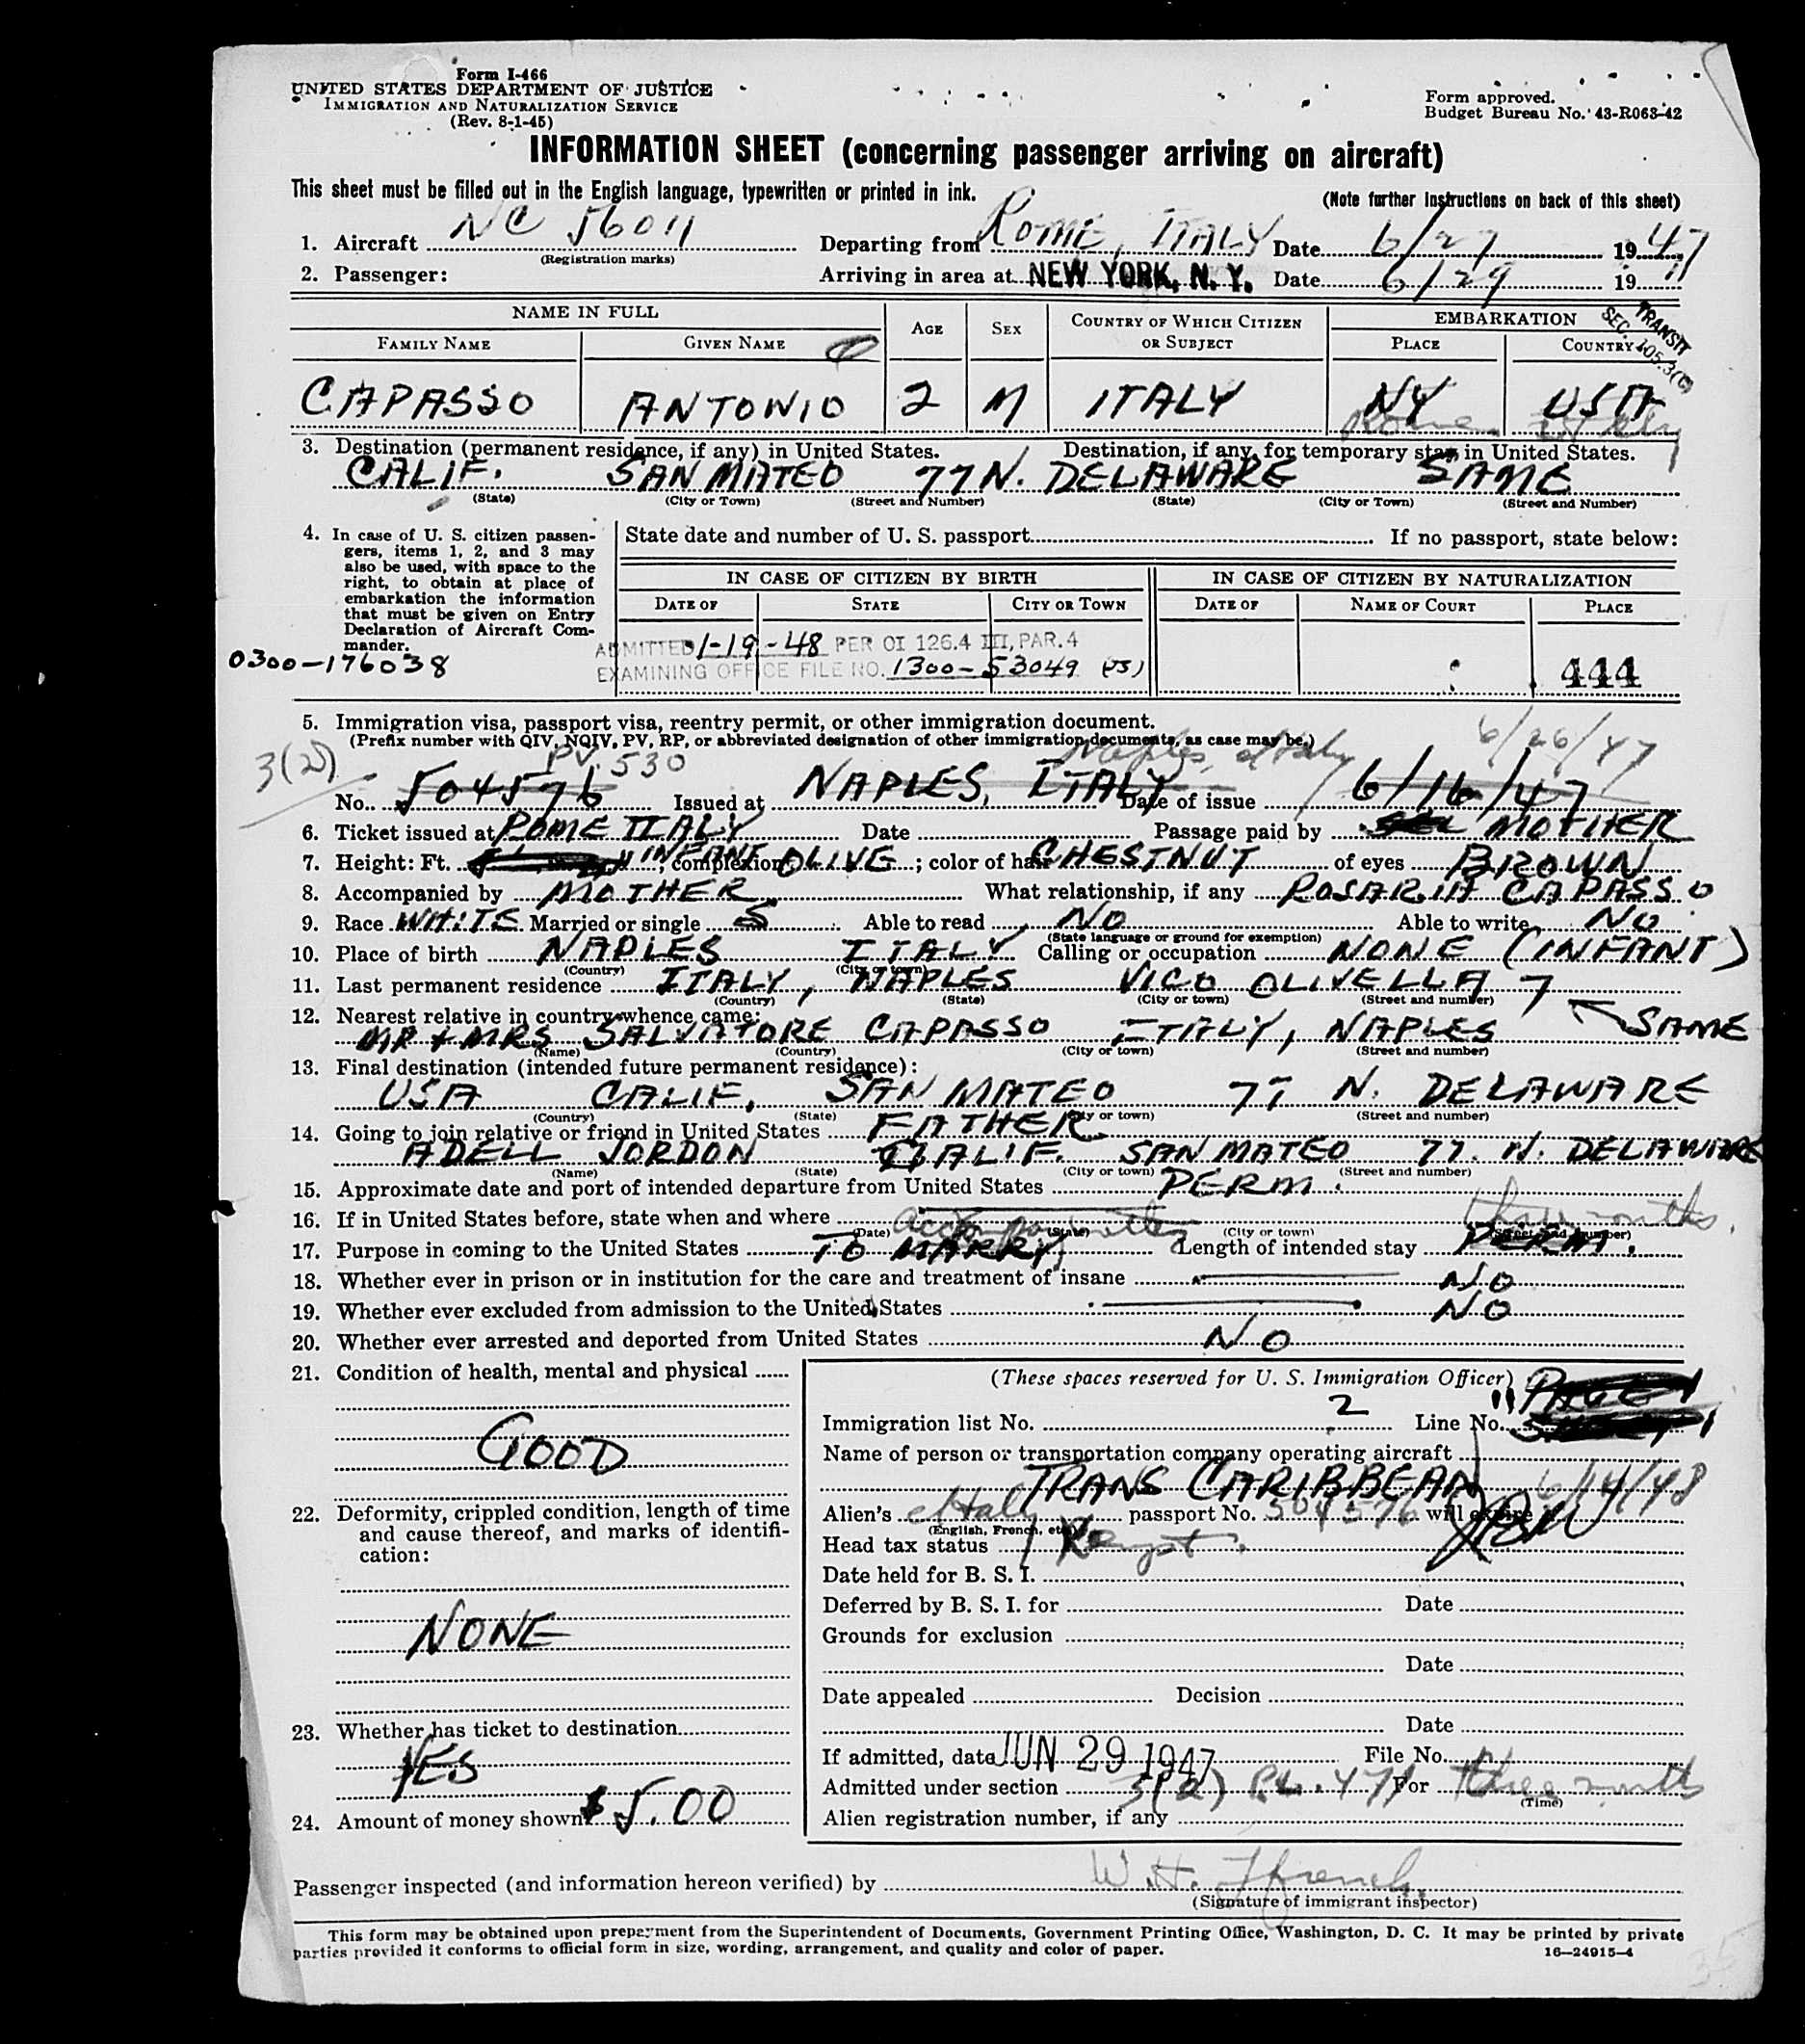 Form I-466
UNITED STATES DEPARTMENT OF JUSTICE
IMMIGRATION AND NATURALIZATION SERVICE
(Rev. 8-1-45)
Form approved.
Budget Bureau No. 43-R063-42
INFORMATION SHEET (concerning passenger arriving on aircraft)
This sheet must be filled out in the English language, typewritten or printed in ink. (Note further instructions on back of this sheet)
1. Aircraft NC 56011 Departing from ROME, ITALY Date 6/27 1947
(Registration marks)
2. Passenger: Arriving in area at NEW YORK, N. Y. Date 6/29 1947
NAME IN FULL AGE SEX COUNTRY OF WHICH CITIZEN OR SUBJECT EMBARKATION
FAMILY NAME GIVEN NAME PLACE COUNTRY
TRANSIT
SEC. 105.3(C)
CAPASSO ANTONIO 2 M ITALY NY USA
Rome Italy
3. Destination (permanent residence, if any) in United States. Destination, if any, for temporary stay in United States.
CALIF. SAN MATEO 77 N. DELAWARE SAME
(State) (City or Town) (Street and Number) (State) (City or Town) (Street and Number)
4. In case of U. S. citizen passengers, items 1, 2, and 3 may also be used, with space to the right, to obtain at place of embarkation the information that must be given on Entry Declaration of Aircraft Commander.
State date and number of U. S. passport If no passport, state below:
IN CASE OF CITIZEN BY BIRTH IN CASE OF CITIZEN BY NATURALIZATION
DATE OF STATE CITY OR TOWN DATE OF NAME OF COURT PLACE
ADMITTED 1-19-48 PER OI 126.4 III, PAR.4
0300-176038
EXAMINING OFFICE FILE NO. 1300-53049 (JS) 444
5. Immigration visa, passport visa, reentry permit, or other immigration document.
(Prefix number with QIV, NQIV, PV, RP, or abbreviated designation of other immigration documents, as case may be.)
3(2) PV. 530 Naples, Italy 6/26/47
No. 504576 Issued at NAPLES, ITALY Date of issue 6/16/47
6. Ticket issued at ROME ITALY Date Passage paid by MOTHER
7. Height: Ft. INFANT; complexion OLIVE; color of hair CHESTNUT of eyes BROWN
8. Accompanied by MOTHER What relationship, if any ROSARIA CAPASSO
9. Race WHITE Married or single S Able to read NO Able to write NO
(State language or ground for exemption)
10. Place of birth NAPLES ITALY Calling or occupation NONE (INFANT)
(Country) (City or town)
11. Last permanent residence ITALY, NAPLES VICO OLIVELLA 7
(Country) (State) (City or town) (Street and number)
12. Nearest relative in country whence came: SAME
MR + MRS SALVATORE CAPASSO ITALY, NAPLES
(Name) (Country) (City or town) (Street and number)
13. Final destination (intended future permanent residence):
USA CALIF, SAN MATEO 77 N. DELAWARE
(Country) (State) (City or town) (Street and number)
14. Going to join relative or friend in United States FATHER
ADELL JORDON CALIF. SAN MATEO 77. N. DELAWARE
(Name) (State) (City or town) (Street and number)
15. Approximate date and port of intended departure from United States PERM.
16. If in United States before, state when and where three months.
(Date) (State) (City or town) (Street and number)
17. Purpose in coming to the United States TO MARRY Length of intended stay PERM.
18. Whether ever in prison or in institution for the care and treatment of insane NO
19. Whether ever excluded from admission to the United States NO
20. Whether ever arrested and deported from United States NO
21. Condition of health, mental and physical
GOOD
22. Deformity, crippled condition, length of time and cause thereof, and marks of identification:
NONE
23. Whether has ticket to destination
YES
24. Amount of money shown $5.00
(These spaces reserved for U. S. Immigration Officer)
Immigration list No. 2 Line No. 11
Name of person or transportation company operating aircraft
TRANS CARIBBEAN
Alien's Italy passport No. 504576 will expire 6/14/48
(English, French, etc.)
Head tax status
Date held for B. S. I.
Deferred by B. S. I. for Date
Grounds for exclusion
Date
Date appealed Decision
Date
If admitted, date JUN 29 1947 File No.
Admitted under section 3(2) P.L. 471 For three months
(Time)
Alien registration number, if any
Passenger inspected (and information hereon verified) by W. H. Ffrench
(Signature of immigrant inspector)
This form may be obtained upon prepayment from the Superintendent of Documents, Government Printing Office, Washington, D. C. It may be printed by private
parties provided it conforms to official form in size, wording, arrangement, and quality and color of paper. 16—24915-4